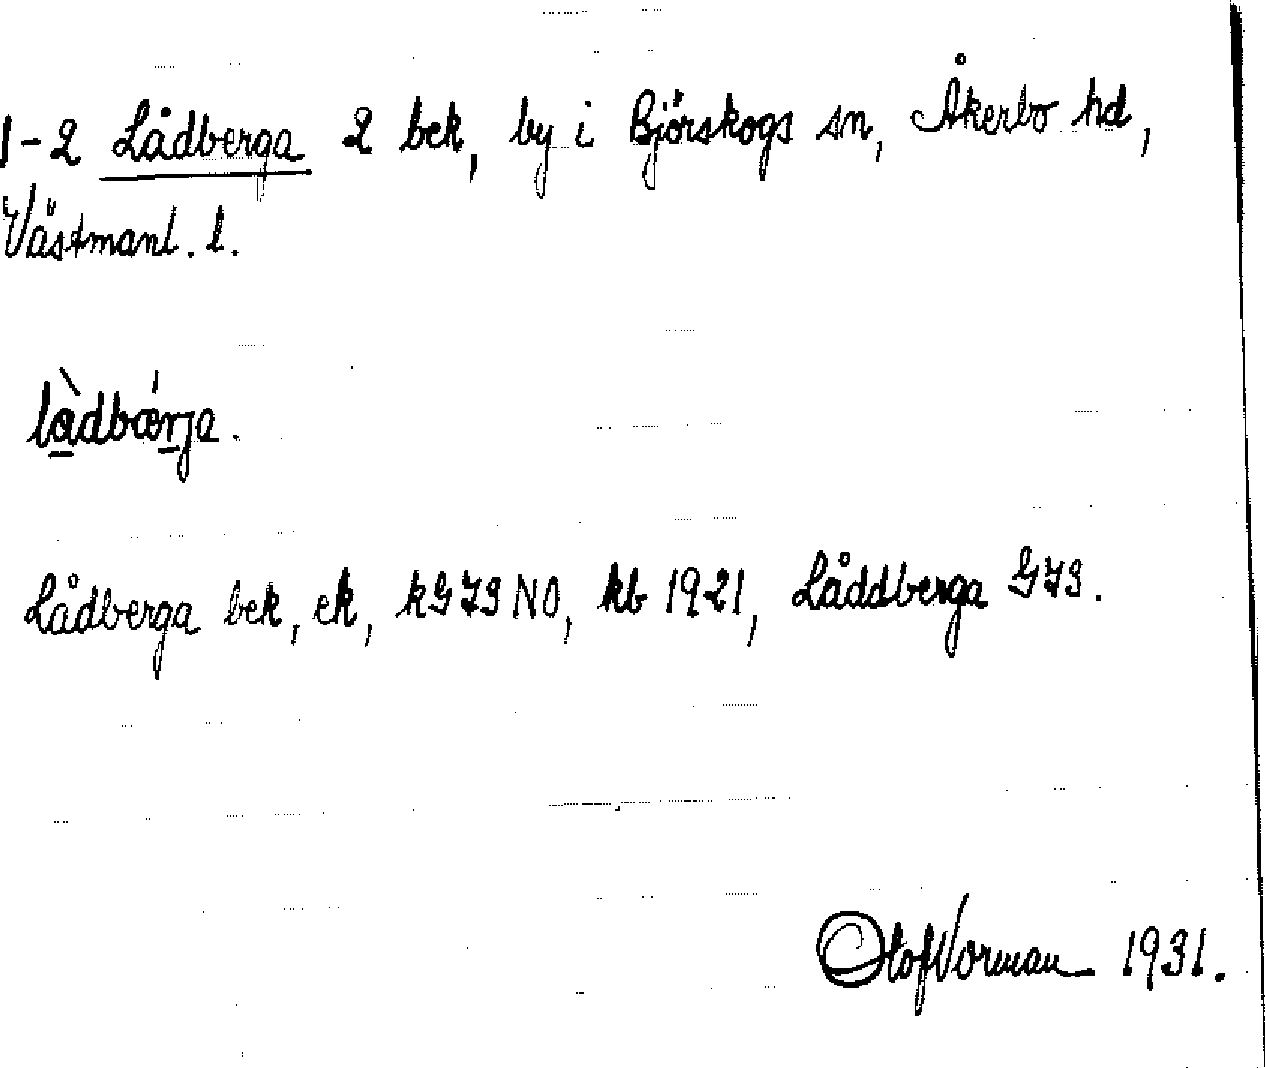 1-2 Lådberga 2 bek, by i Björskogs sn, Åkerbo hd,
Västmanl. l.
làdbǽrja.
Lådberga bek, ek, kG73NO, kb 1921, Låddberga G73.
Olof Vorman 1931.